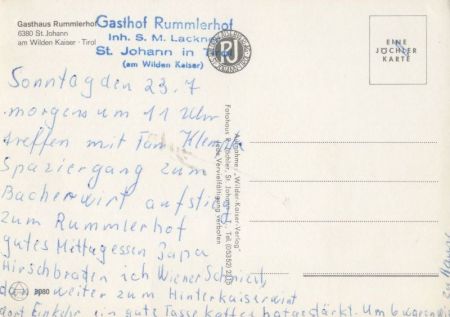 Gasthaus Rummlerhof
6380 St. Johann
am Wilden Kaiser · Tirol
Gasthof Rummlerhof
Inh. S. M. Lackner
St. Johann in Tirol
(am Wilden Kaiser)
PJ
EINE
JÖCHLER
KARTE
Sonntag den 23.7
morgens um 11 Uhr
treffen mit Fam
Spaziergang zum
Bacherwirt aufstieg
zum Rummlerhof
gutes Mittagessen Papa
Hirschbraten ich Wiener Schnitzl,
dann weiter zum Hinterkaiserwirt
dort Einkehr ein gute Tasse Kaffee hat gestärkt. Um 6 waren wir
zu Hause
Aufnahme: „Wilder-Kaiser-Verlag"
Fotohaus R. Jöchler, St. Johann i. T., Tel. (05352)
Jede Vervielfältigung verboten